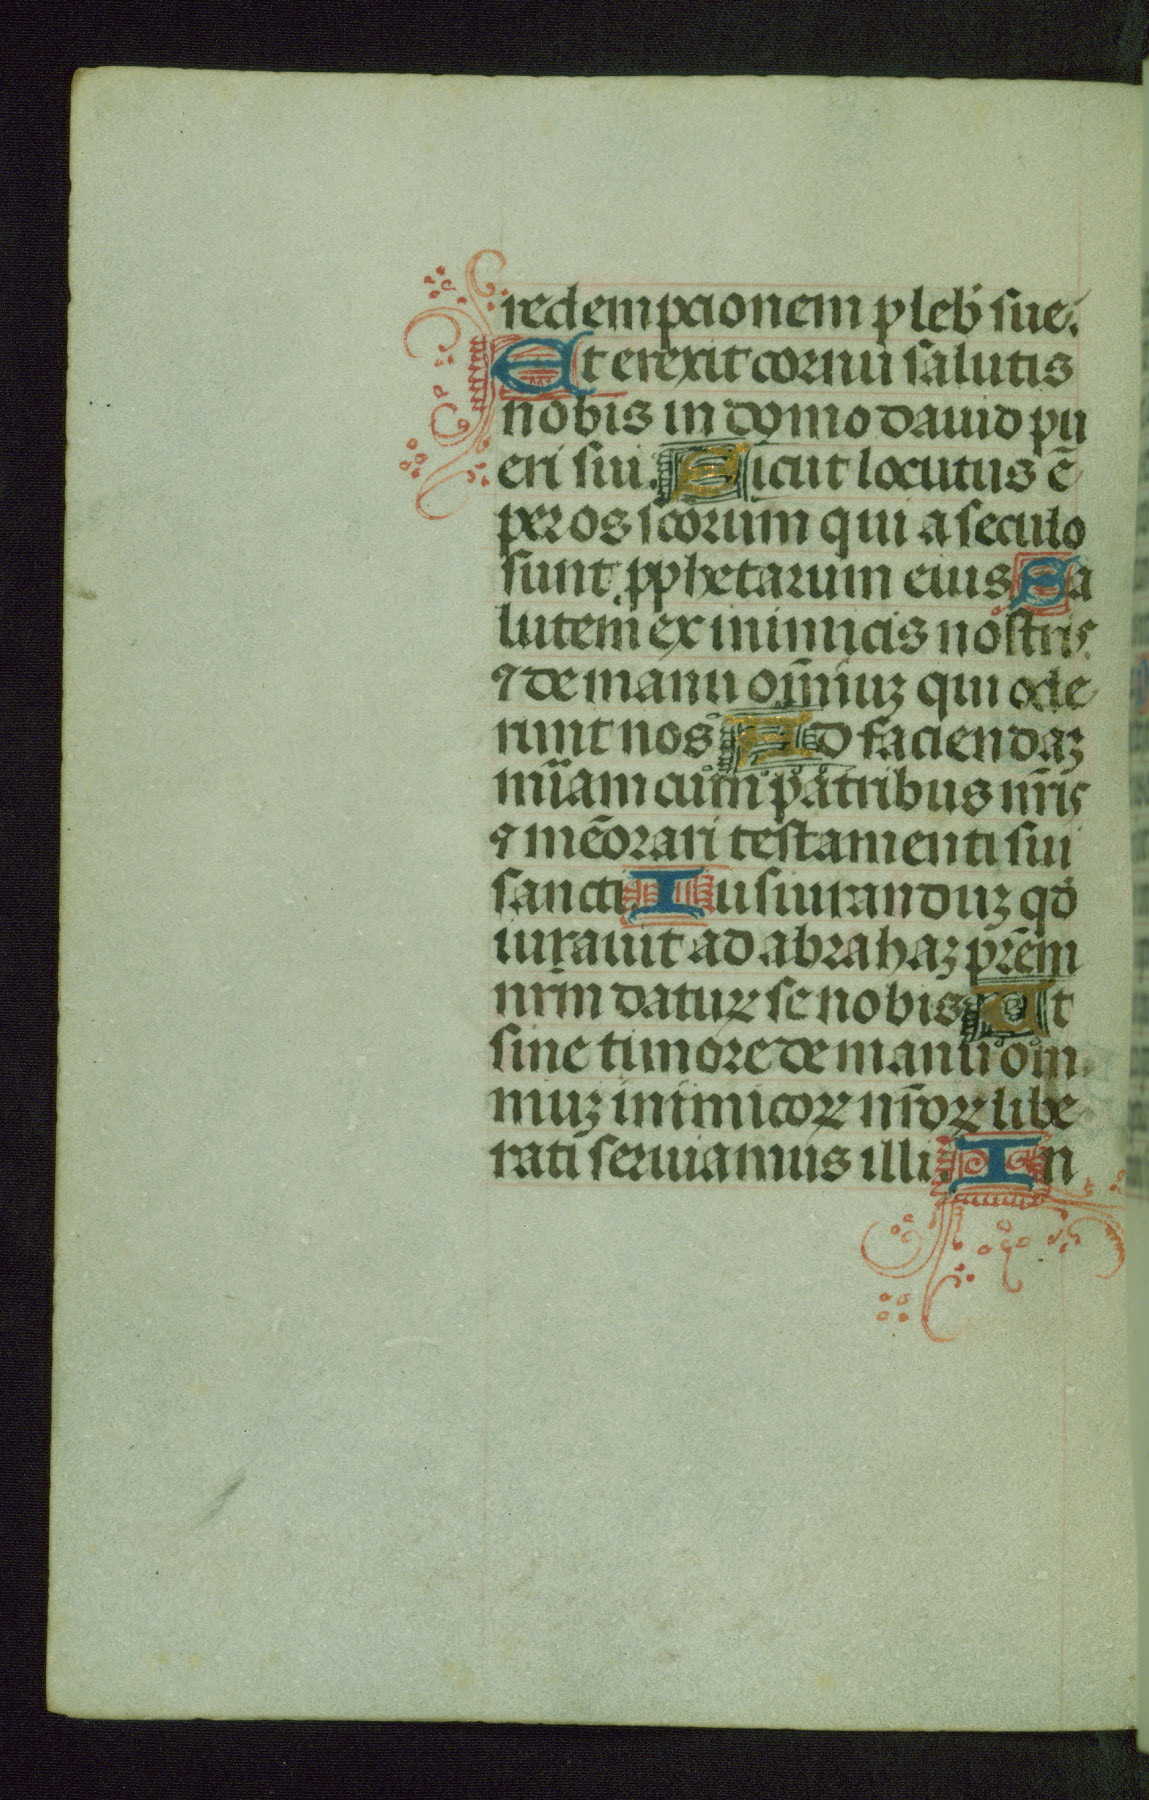 redempcionem pleb̕ sue.
Et erexit cornu salutis
nobis in domo dauid pu
eri sui. Sicut locutus ē
per os scōrum qui a seculo
sunt ꝓphetarum eius Sa
lutem ex inimicis nostris
⁊ de manu om̄iuꝫ qui ode
runt nos Ad faciendaꝫ
mīam cum patribus nr̄is
⁊ mēorari testamenti sui
sancti. Iusiuranduꝫ qđ
iurauit ad abrahaꝫ pr̄em
nrm̄ daturꝫ se nobis Ut
sine timore de manu om
niuꝫ inimicoꝝ nr̄oꝝ libe
rati seruiamus illi. In